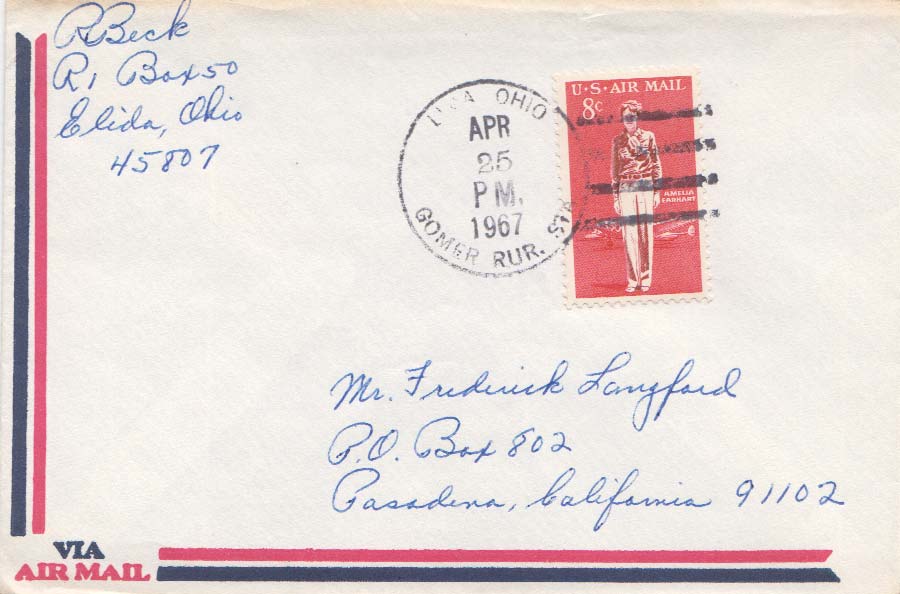 R Beck
R1 Box 50
Elida, Ohio
45807
LIMA OHIO
APR
25
PM.
1967
GOMER RUR. STA.
U·S·AIR MAIL
8c
AMELIA
EARHART
Mr. Frederick Langford
P.O. Box 802
Pasadena, California 91102
VIA
AIR MAIL